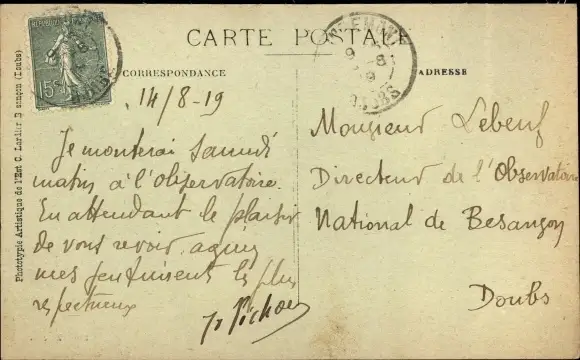 CARTE POSTALE
CORRESPONDANCE
ADRESSE
14/8-19
Je monterai Samedi
matin à l'observatoire.
En attendant le plaisir
de vous revoir, agréez
mes sentiments les plus
respectueux
Monsieur Lebeuf
Directeur de l'Observatoire
National de Besançon
Doubs
Phototypie Artistique de l'Est C. Lardier Besançon (Doubs)
15c
DOUBS